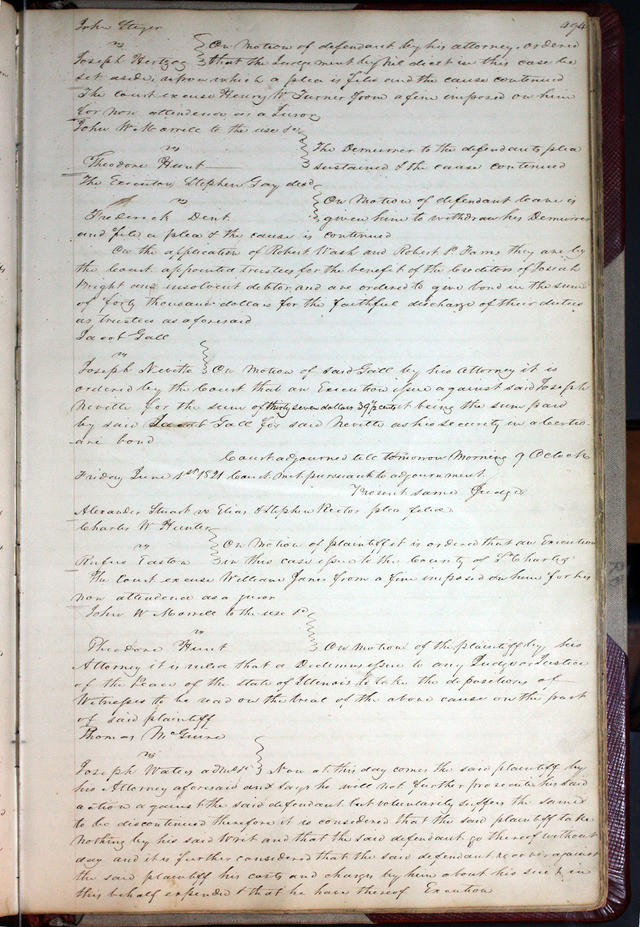 494
John Steger
vs
On Motion of defendant by his attorney ordered
Joseph Hertzog that the Judgement by Nil dicit in this case be
set aside, upon which a plea is filed and the cause continued
The Court excuse Henry W Turner from a fine imposed on him
for non attendance as a Juror
John W Morrell to the use &c
vs
The Demurrer to the defendants plea
Theodore Hunt sustained & the cause continued
The Executors Stephen Gay decd
vs
On Motion of defendant leave is
Frederick Dent given him to withdraw his Demurrer
and file a plea & the cause is continued
On the application of Robert Wash and Robert P Farris they are by
the Court appointed trustees for the benefit of the Creditors of Josiah
Bright an insolvent debtor, and are ordered to give bond in the sum
of forty thousand dollars for the faithful discharge of their duties
as trustees as aforesaid
Jacob Gall
vs
Joseph Nevitte On Motion of said Gall by his Attorney it is
ordered by the Court that an Execution issue against said Joseph
Nevitte for the sum of thirty seven dollars 39½ cents it being the sum paid
by said Jacob Gall for said Nevitte as his security in a certio-
-rari bond
Court adjourned till tomorrow Morning 9 O'Clock
Friday June 1st 1821 Court met pursuant to adjournment
Present same Judges
Alexander Stuart vs Elias & Stephen Rector plea filed
Charles W Hunter
vs
On Motion of plaintiff it is ordered that an Execution
Rufus Easton in this case issue to the County of St Charles
The Court excuse William Janes from a fine imposed on him for his
non attendance as a juror
John W Morrell to the use &c
vs
Theodore Hunt On Motion of the plaintiff by his
Attorney it is ruled that a Dedimus issue to any Judge or Justice
of the Peace of the state of Illinois to take the depositions of
Witnesses to be read on the trial of the above cause on the part
of said plaintiff
Thomas McGuire
vs
Joseph Waters admr &c Now at this day comes the said plaintiff by
his Attorney aforesaid and says he will not further prosecute his said
action against the said defendant but voluntarily suffers the same
to be discontinued therefore it is considered that the said plaintiff take
nothing by his said Writ and that the said defendant go thereof without
day and it is further considered that the said defendant recover against
the said plaintiff his costs and charges by him about his suit in
this behalf expended & that he have thereof Execution